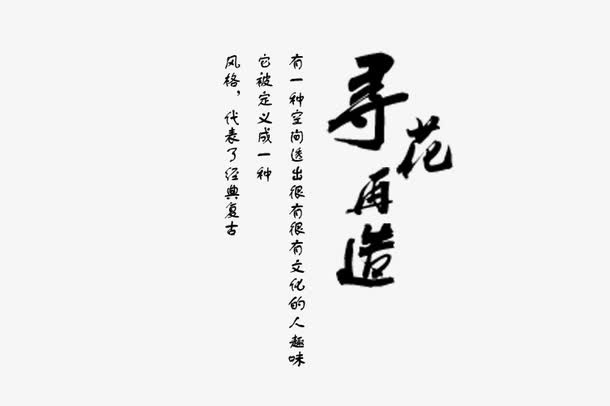 寻花再造
有一种空间透出很有很有文化的人趣味
它被定义成一种
风格，代表了经典复古